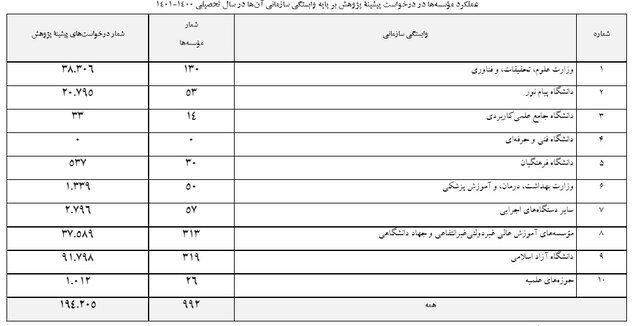 عملکرد مؤسسه‌ها در درخواست پیشینهٔ پژوهش بر پایه وابستگی سازمانی آن‌ها در سال تحصیلی ۱۴۰۰-۱۴۰۱
شماره وابستگی سازمانی شمار مؤسسه‌ها شمار درخواست‌های پیشینهٔ پژوهش
۱ وزارت علوم، تحقیقات، و فناوری ۱۳۰ ۳۸.۳۰۶
۲ دانشگاه پیام نور ۵۳ ۲۰.۷۹۵
۳ دانشگاه جامع علمی‌کاربردی ۱٤ ۳۳
۴ دانشگاه فنی و حرفه‌ای ۰ ۰
۵ دانشگاه فرهنگیان ۳۰ ۵۳۷
۶ وزارت بهداشت، درمان، و آموزش پزشکی ۵۰ ۱.۳۳۹
۷ سایر دستگاه‌های اجرایی ۵۷ ۲.۷۹۶
۸ مؤسسه‌های آموزش عالی غیردولتی‌غیرانتفاعی و جهاد دانشگاهی ۳۱۳ ۳۷.۵۸۹
۹ دانشگاه آزاد اسلامی ۳۱۹ ۹۱.۷۹۸
۱۰ حوزه‌های علمیه ۲۶ ۱.۰۱۲
همه ۹۹۲ ۱۹٤.۲۰۵